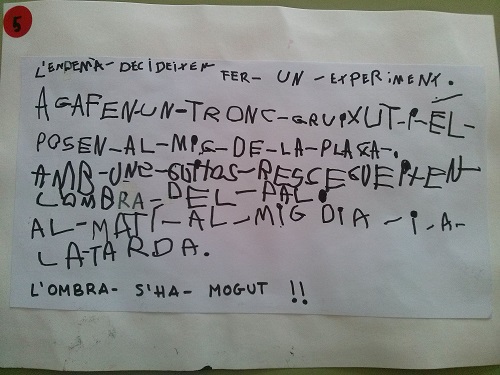 5
L'ENDEMÀ-DECIDEIXEN FER-UN-EXPERIMENT.
AGAFEN-UN-TRONC-GRUIXUT-I-EL-
POSEN-AL-MIG-DE-LA-PLAÇA.
AMB-UNS-RESSEGUEIXEN
L'OMBRA-DEL-PAL.
AL-MATÍ-AL-MIG DIA-I-A-
LATARDA.
L'OMBRA-S'HA-MOGUT !!